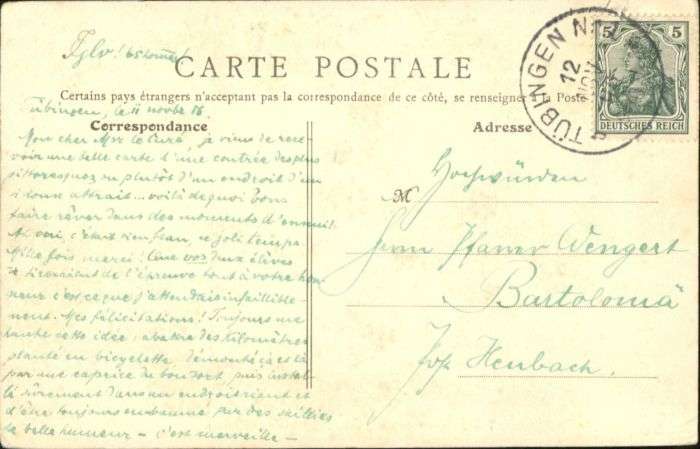 CARTE POSTALE
Certains pays étrangers n'acceptant pas la correspondance de ce côté, se renseigner à la Poste
TÜBINGEN
12
5 5
DEUTSCHES REICH
Correspondance
Adresse
Tübingen, le 11 novbre
Mon cher Mr le Curé, je viens de rece-
voir une belle carte d'une contrée des plus
pittoresques ou plutôt d'un endroit d'un
si doux attrait... voilà de quoi vous
faire rêver dans des moments d'ennui!
Ah oui, c'était bien beau, ce joli temps.
Mille fois merci! Que vos deux élèves
se tireraient de l'épreuve tout à votre hon-
neur c'est ce que j'attendais infaillible-
ment. Mes félicitations! Toujours me
hante cette idée: abattre des kilomètres
en bicyclette, démonté çà et là
par une caprice du bon sort, puis instal-
lé sûrement dans un endroit riant et
d'être toujours embaumé par des saillies
de belle humeur – c'est merveille –
M
Hochwürden
Herrn Pfarrer Wengert
Bartolomä
Heubach.